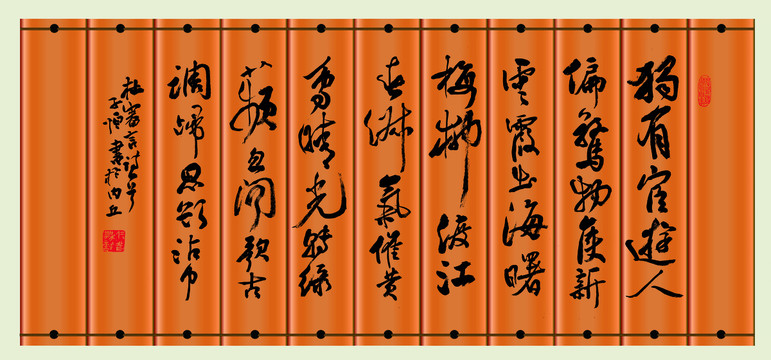 獨有宦遊人
偏驚物候新
雲霞出海曙
梅柳渡江
春淑氣催黄
鳥晴光轉緑
蘋忽聞歌古
調歸思欲沾巾
杜審言詩一首
子恒書於内丘